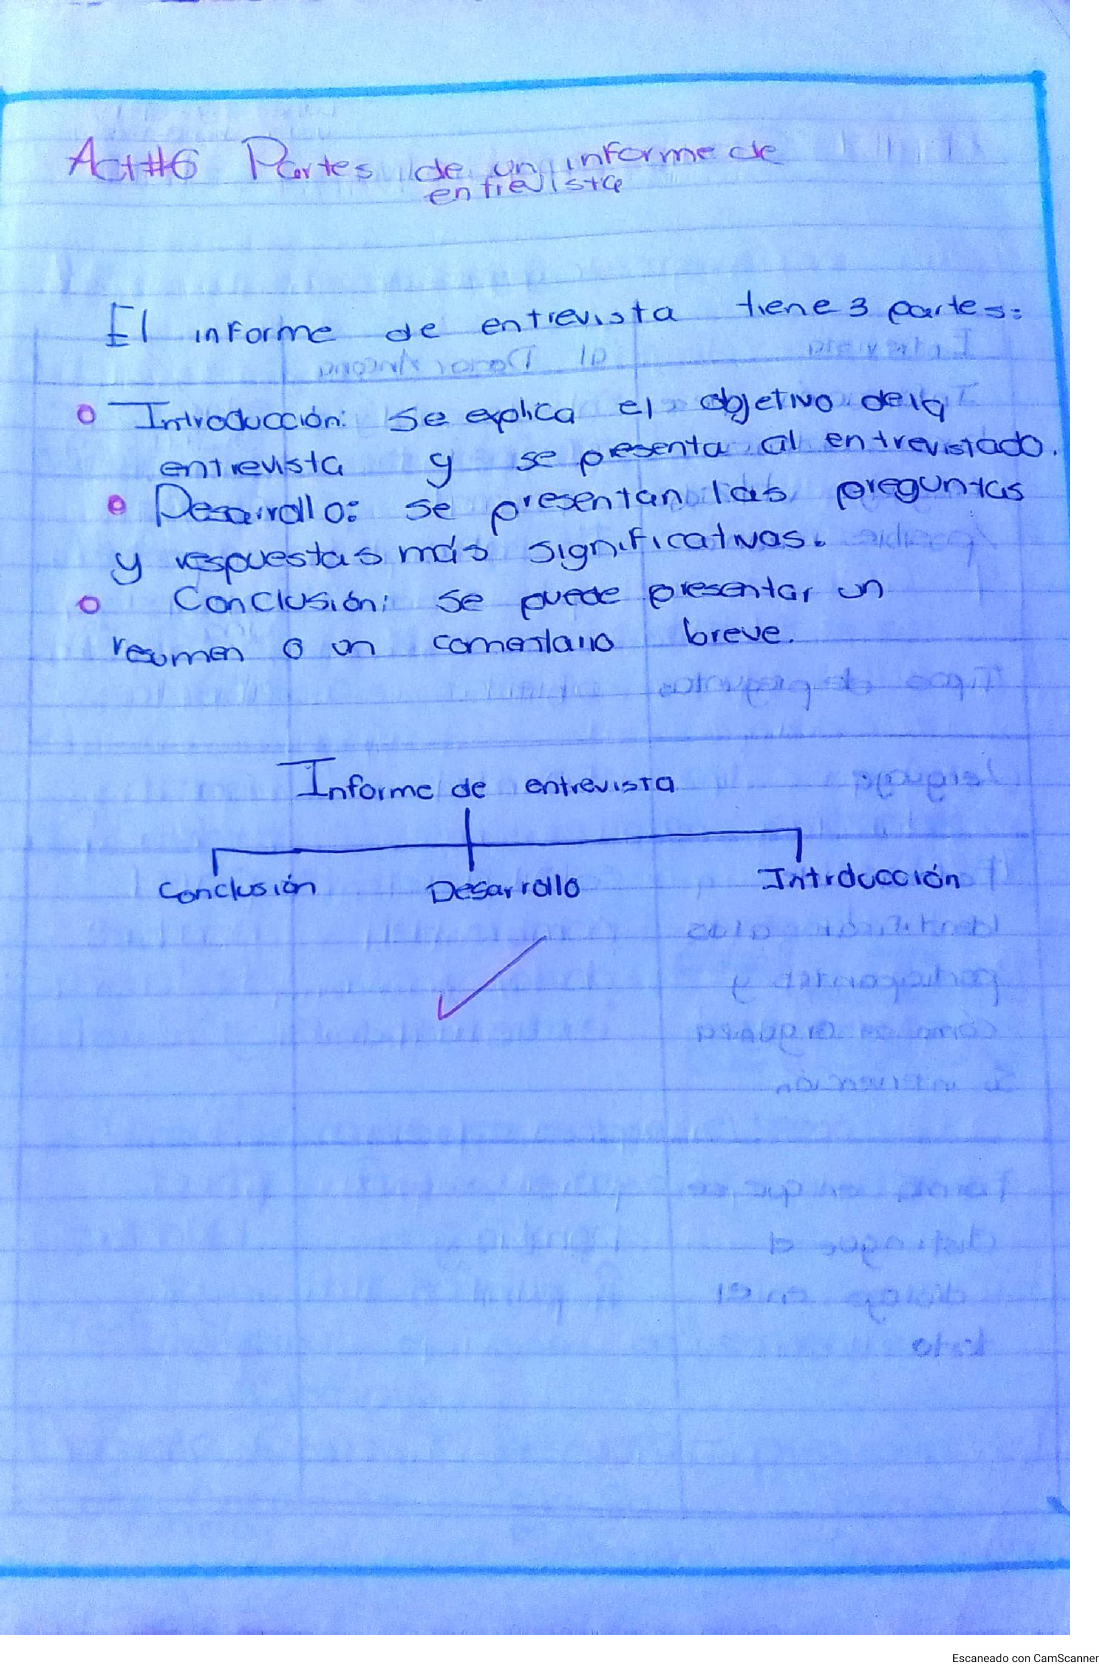 Act#6 Partes de un informe de
entrevista
El informe de entrevista tiene 3 partes:
Introducción: se explica el objetivo de la
entrevista y se presenta al entrevistado.
Desarrollo: se presentan las preguntas
y respuestas más significativas.
Conclusión: se puede presentar un
resumen o un comentario breve.
Informe de entrevista
Conclusión Desarrollo Introducción
Escaneado con CamScanner